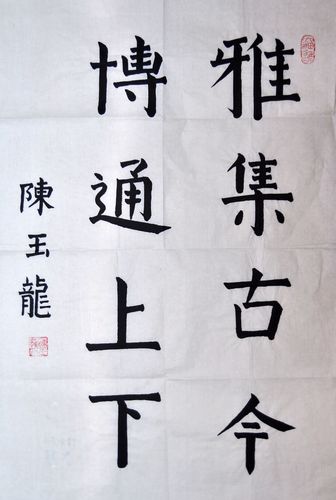 雅集古今
博通上下
陳玉龍